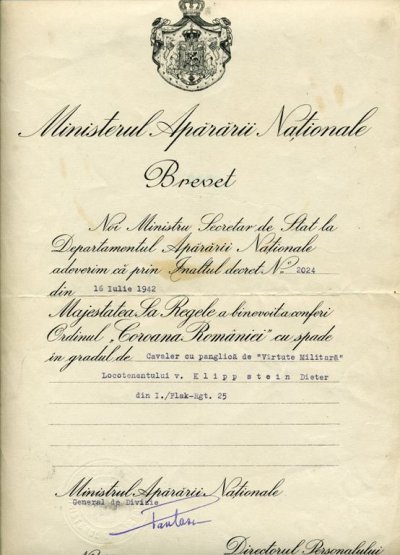 Ministerul Apărării Naționale
Brevet
Noi Ministru Secretar de Stat la
Departamentul Apărării Naționale
adeverim că prin Înaltul decret No. 2024
din 16 Iulie 1942
Majestatea Sa Regele a binevoit a conferi
Ordinul „Coroana României” cu spade
în gradul de Cavaler cu panglică de "Virtute Militară"
Locotenentului v. Klippstein Dieter
din I./Flak-Rgt. 25
Ministrul Apărării Naționale
General de Divizie
Directorul Personalului